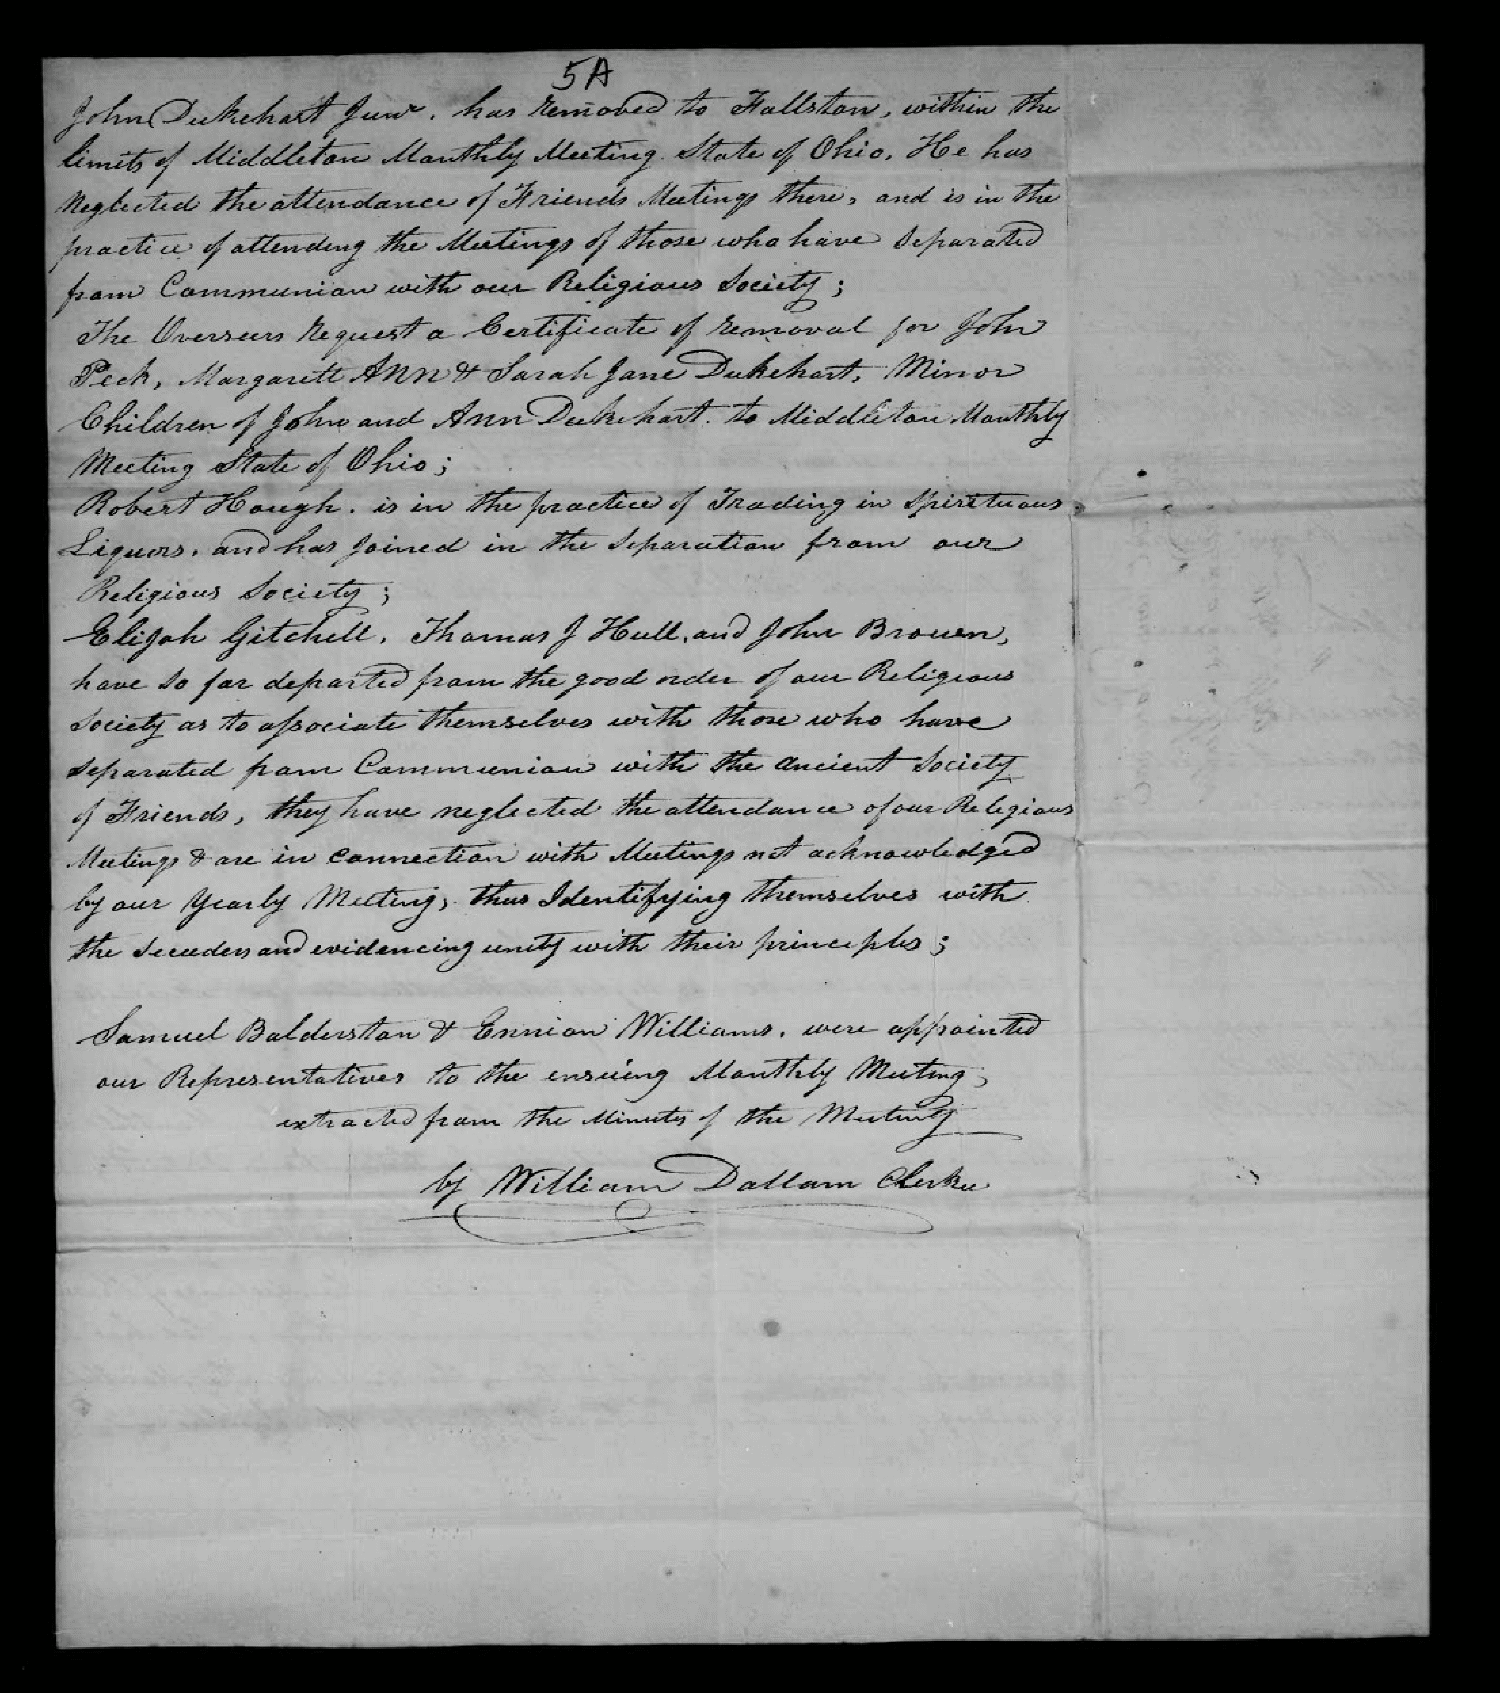 5A
John Dukehart Junr. has removed to Fallston, within the
limits of Middleton Monthly Meeting State of Ohio. He has
Neglected the attendance of Friends Meetings there, and is in the
practice of attending the Meetings of those who have Separated
from Communion with our Religious Society;
The Overseers Request a Certificate of removal for John
Peck, Margarett Ann & Sarah Jane Dukehart, Minor
Children of John and Ann Dukehart. to Middleton Monthly
Meeting State of Ohio;
Robert Hough. is in the practice of Trading in Spirituous
Liquors. and has Joined in the Separation from our
Religious Society;
Elijah Gitchell, Thomas J Hull, and John Brown,
have so far departed from the good order of our Religious
Society as to associate themselves with those who have
separated from Communion with the ancient Society
of Friends, they have neglected the attendance of our Religious
Meetings & are in connection with Meetings not acknowledged
by our Yearly Meeting, thus Identifying themselves with
the Seceeders and evidencing unity with their principles;
Samuel Balderston & Ennion Williams. were appointed
our Representatives to the ensuing Monthly Meeting;
extracted from the Minutes of the Meeting
by William Dallam Clerke